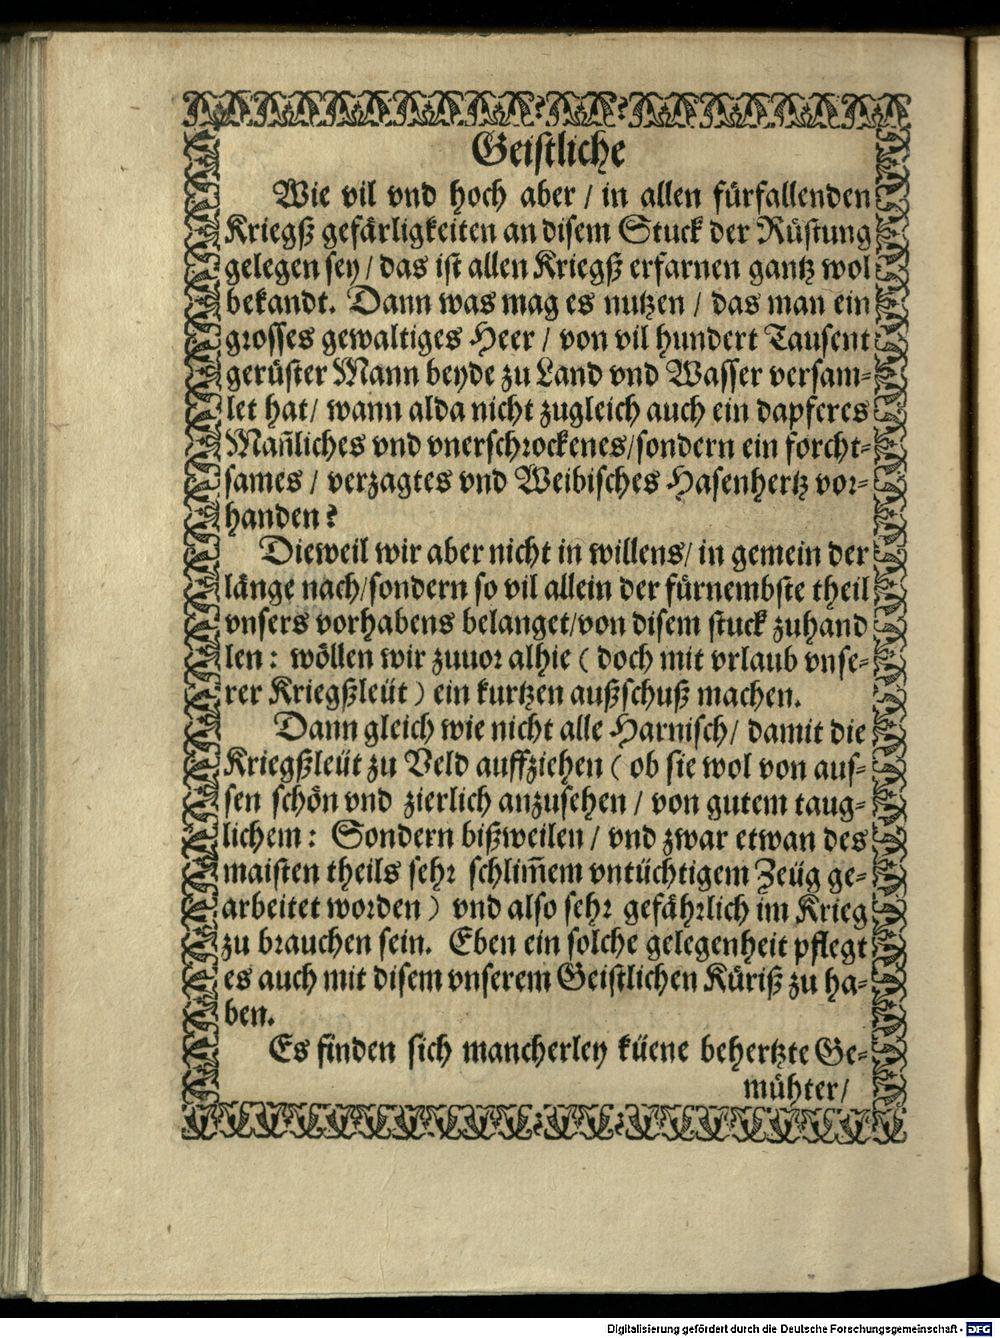 Geistliche
Wie vil vnd hoch aber / in allen fürfallenden
Kriegß gefärligkeiten an disem Stuck der Rüstung
gelegen sey / das ist allen Kriegß erfarnen gantz wol
bekandt. Dann was mag es nutzen / das man ein
grosses gewaltiges Heer / von vil hundert Tausent
gerüster Mann beyde zu Land vnd Wasser versam=
let hat / wann alda nicht zugleich auch ein dapferes
Mañliches vnd vnerschrockenes / sondern ein forcht=
sames / verzagtes vnd Weibisches Hasenhertz vor=
handen?
Dieweil wir aber nicht in willens / in gemein der
länge nach / sondern so vil allein der fürnembste theil
vnsers vorhabens belanget / von disem stuck zuhand
len: wöllen wir zuuor alhie ( doch mit vrlaub vnse=
rer Kriegßleüt ) ein kurtzen außschuß machen.
Dann gleich wie nicht alle Harnisch / damit die
Kriegßleüt zu Veld auffziehen ( ob sie wol von aus=
sen schön vnd zierlich anzusehen / von gutem taug=
lichem: Sondern bißweilen / vnd zwar etwan des
maisten theils sehr schlim̃em vntüchtigem Zeüg ge=
arbeitet worden ) vnd also sehr gefährlich im Krieg
zu brauchen sein. Eben ein solche gelegenheit pflegt
es auch mit disem vnserem Geistlichen Küriß zu ha=
ben.
Es finden sich mancherley küene behertzte Ge=
mühter /
Digitalisierung gefördert durch die Deutsche Forschungsgemeinschaft - DFG